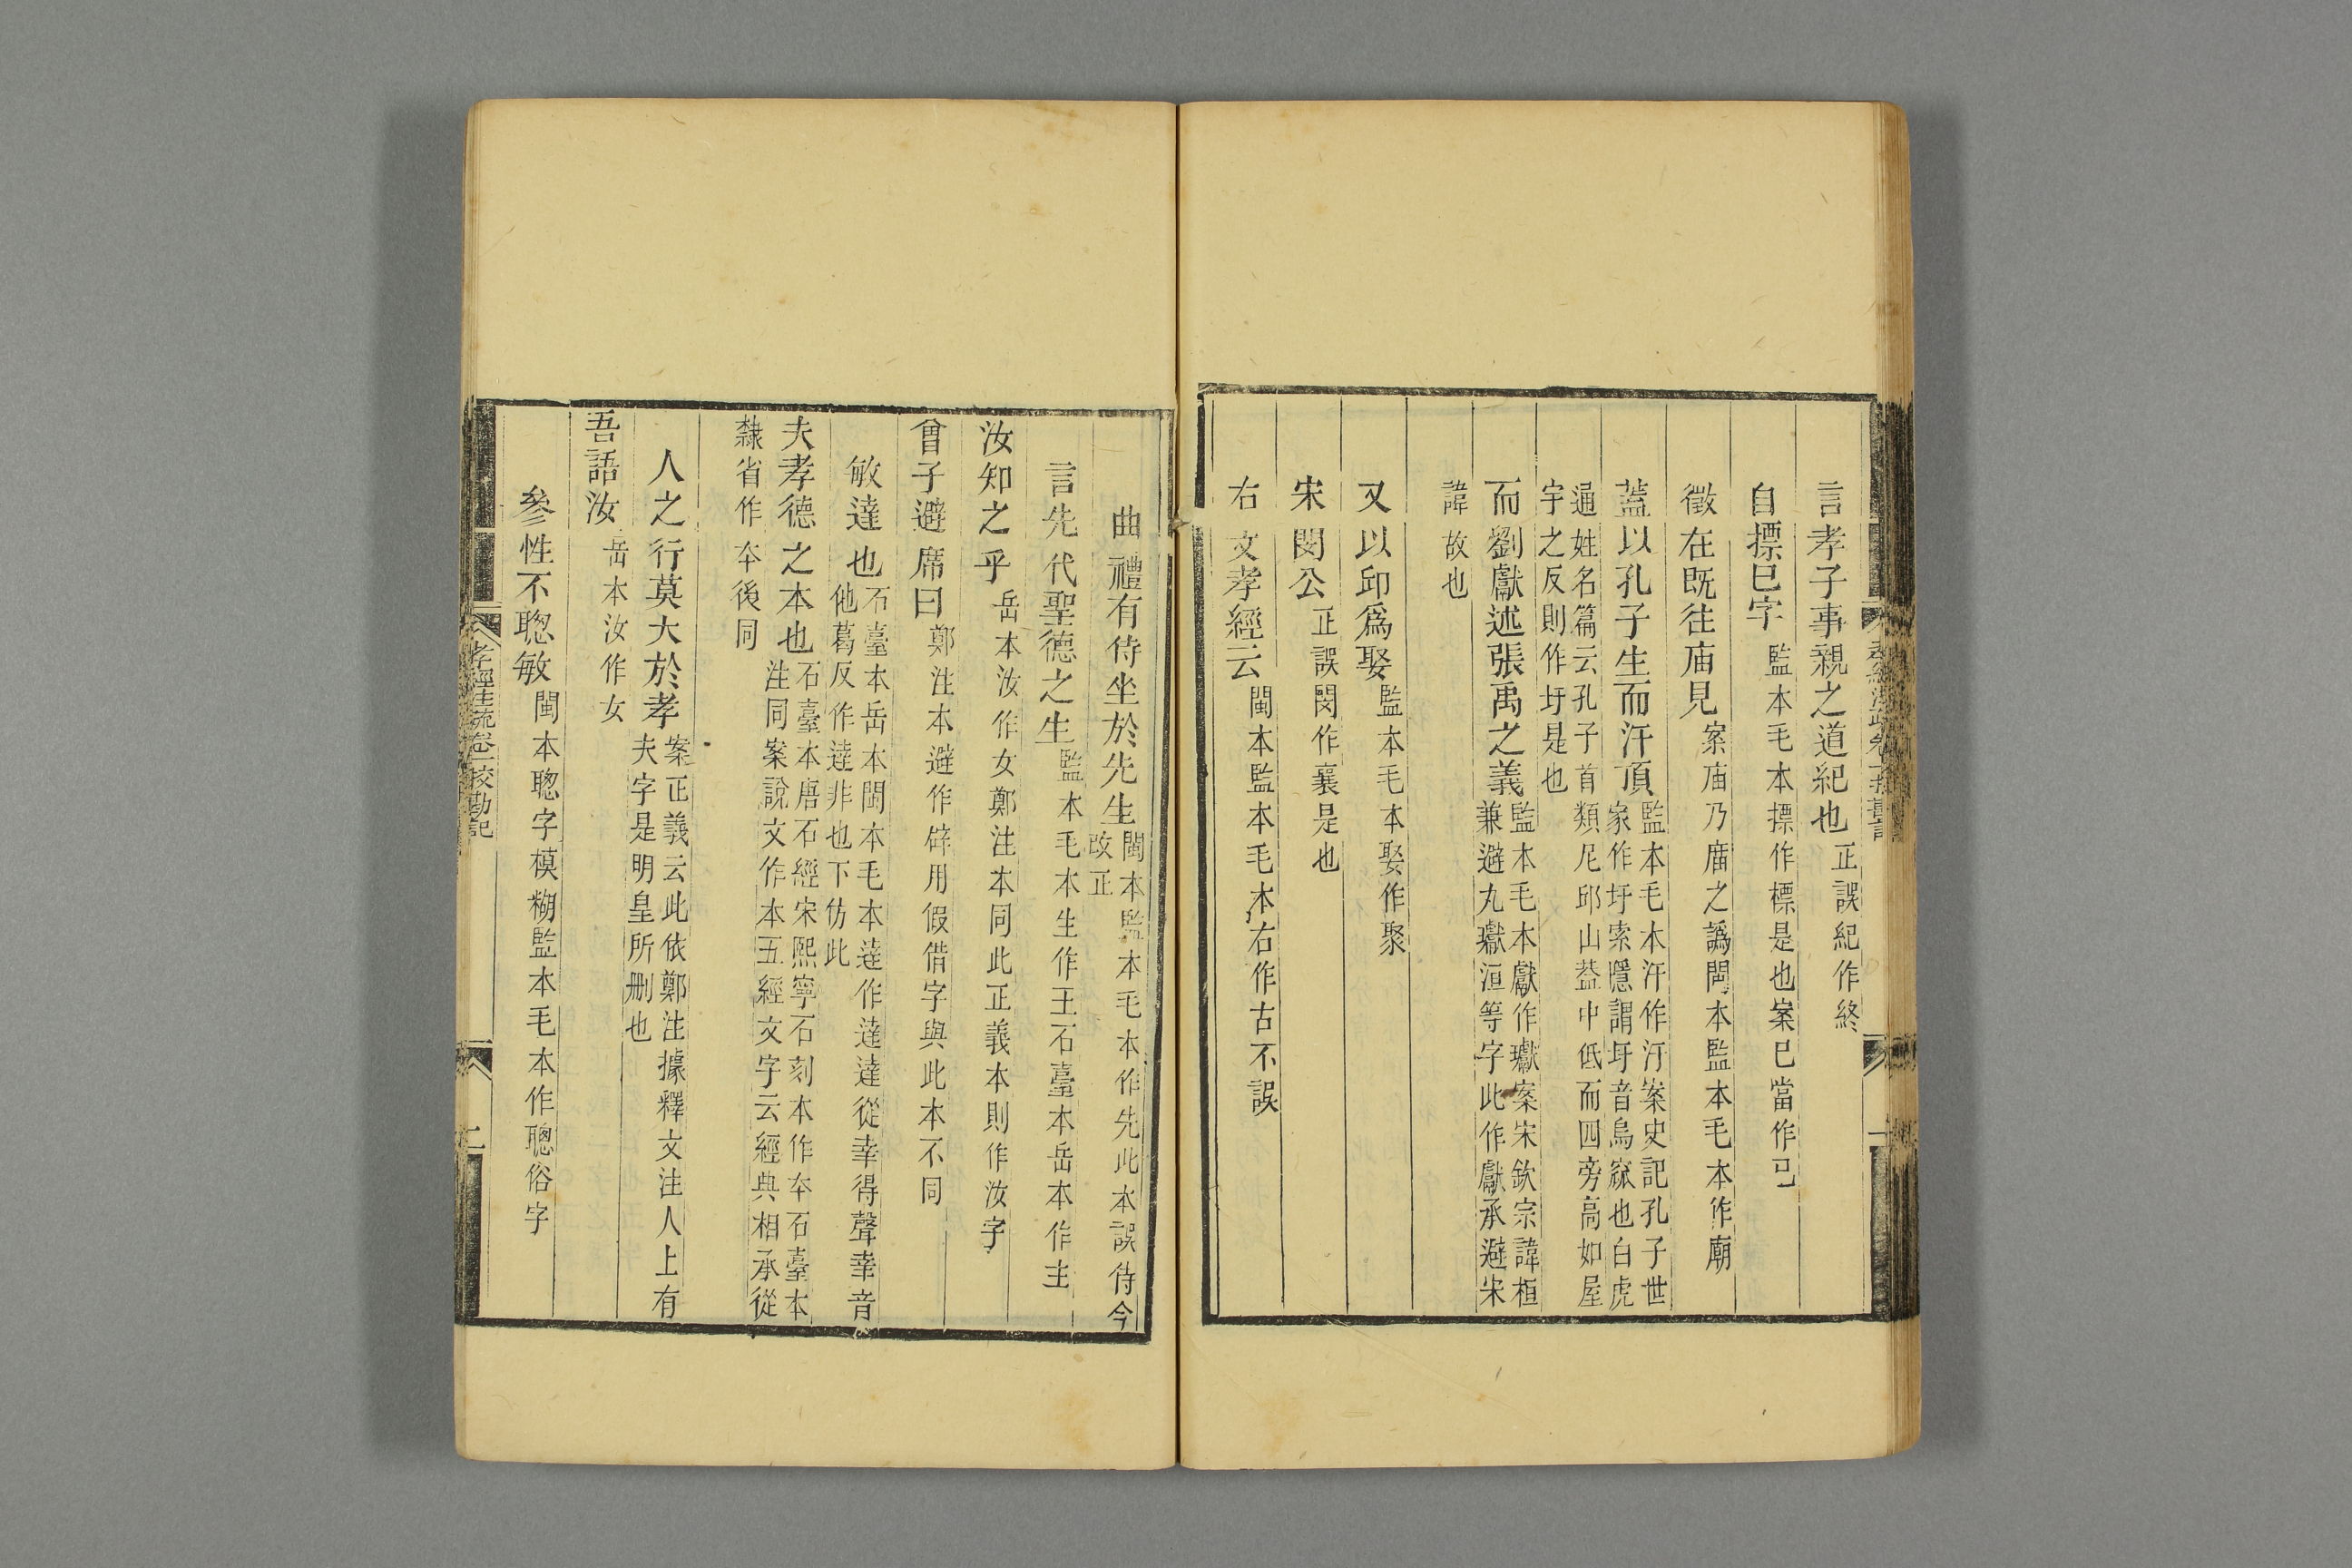 言孝子事親之道紀也正誤紀作終
自摽巳字監本毛本摽作標是也案巳當作已
徵在既往庙見案庙乃庿之譌閩本監本毛本作廟
蓋以孔子生而汙頂監本毛本汙作汚案史記孔子世家作圩索隱謂圩音烏窳也白虎
通姓名篇云孔子首類尼邱山葢中低而四旁高如屋宇之反則作圩是也
而劉獻述張禹之義監本毛本獻作瓛案宋欽宗諱桓兼避丸瓛洹等字此作獻承避宋
諱故也
又以卽爲娶監本毛本娶作聚
宋閔公正誤閔作襄是也
右文孝經云閩本監本毛本右作古不誤
曲禮有侍坐於先生閩本監本毛本作先此本誤待今改正
言先代聖德之生監本毛本生作王石臺本岳本作主
汝知之乎岳本汝作女鄭注本同此正義本則作汝字
曾子避席曰鄭注本避作辟用假借字與此本不同
敏達也石臺本岳本閩本毛本達作達達從幸得聲幸音他葛反作逹非也下仿此
夫孝德之本也石臺本唐石經宋熙寧石刻本作夲石臺本注同案說文作本五經文字云經典相承從
隸省作夲後同
人之行莫大於孝案正義云此依鄭注據釋文注人上有夫字是明皇所刪也
吾語汝岳本汝作女
參性不聰敏閩本聰字模糊監本毛本作聰俗字
孝經注疏卷一校勘記
二